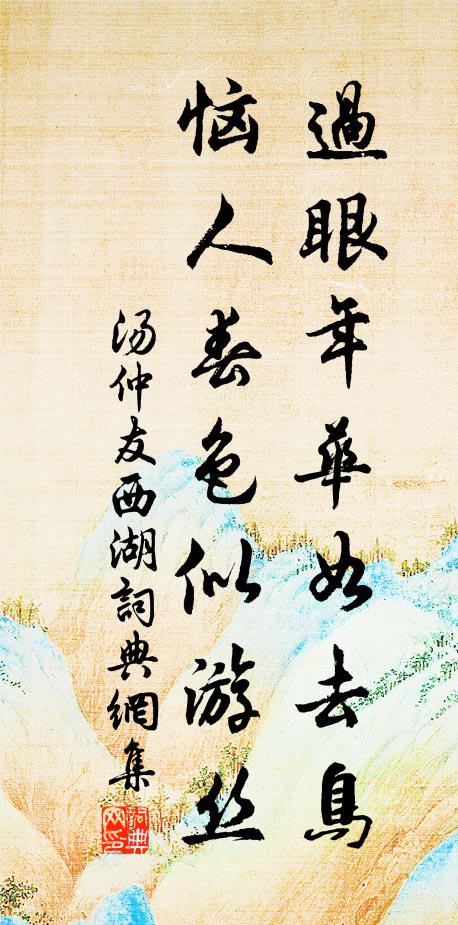 過眼年華如去鳥
恼人春色似游丝
汤仲友西湖詞典網集
詞典